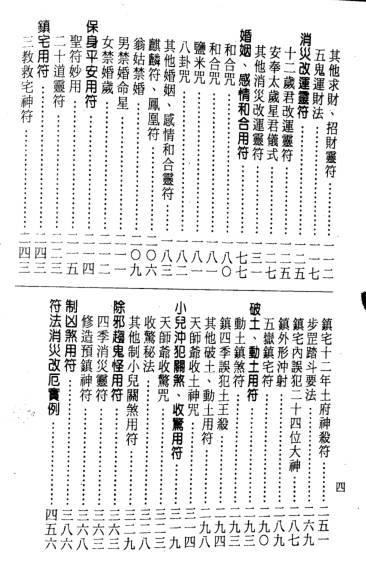 其他求財、招財靈符………一一二
五鬼運財法………一一七
消災改運靈符………一二五
十二歲君改運靈符………一二五
安奉太歲星君儀式………一二七
其他消災改運靈符………一三一
婚姻、感情和合用符………一七七
和合咒………一八〇
鹽米咒………一八一
和合咒………一八一
八卦咒………一八二
其他婚姻、感情和合靈符………一八三
麒麟符、鳳凰符………二〇六
翁姑禁婚………二〇九
男禁婚命星………二一一
女禁婚歲………二一一
保身平安用符………二一四
聖符妙用………二一五
二十道靈符………二二三
鎮宅用符………二四三
三教救宅神符………二四三
鎮宅十二年土府神殺符………二五一
步罡踏斗要法………二六九
鎮宅內誤犯二十四位大神………二八七
鎮外形沖射………二八八
五嶽鎮宅符………二九〇
破土、動土用符………二九三
動土鎮煞符………二九三
鎮四季誤犯土王殺………二九四
其他破土、動土用符………二九八
天師爺收土神咒………三一四
小兒沖犯關煞、收驚用符………三一九
天師爺收驚咒………三一九
收驚秘法………三二八
其他制小兒關煞用符………三二九
除邪趕鬼怪用符………三六三
四季消災靈符………三六三
修造預鎮神符………三六六
制凶煞用符………三八六
符法消災改厄實例………四五六
四